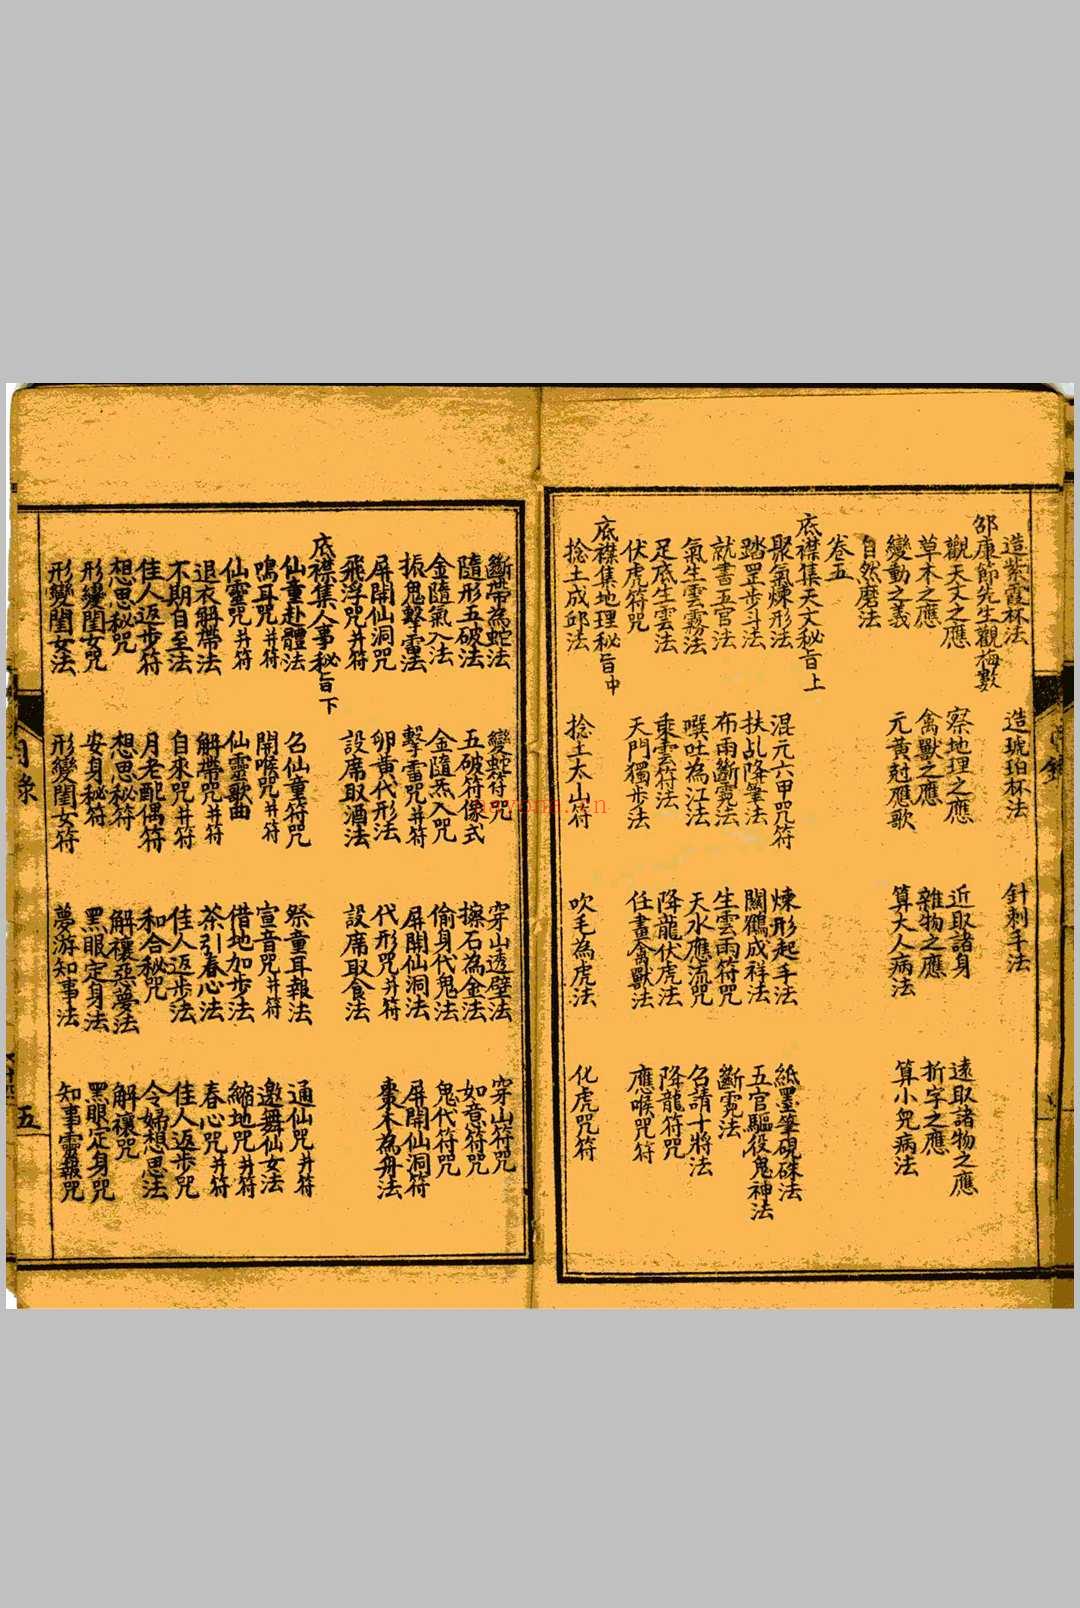 造紫霞杯法 造琥珀杯法 針刺手法
邵康節先生觀梅數
觀天文之應 察地理之應 近取諸身 遠取諸物之應
草木之應 禽獸之應 雜物之應 折字之應
變動之義 元黃尅應歌 算大人病法 算小兒病法
自然磨法
卷五
底襟集天文秘旨上
聚氣煉形法 混元六甲咒符 煉形起手法 紙墨筆硯硃法
踏罡步斗法 扶乩降筆法 關鶴成祥法 五官驅役鬼神法
就書五宫法 布雨斷霓法 生雲雨符咒 斷霓法
氣生雲霧法 噀吐為江法 天水應流咒 召請十將法
足底生雲法 乘雲符法 降龍伏虎法 降龍符咒
伏虎符咒 天門獨步法 任畫禽獸法 應喉咒符
底襟集地理秘旨中
捻土成邱法 捻土太山符 吹毛為虎法 化虎咒符
斷帶為蛇法 變蛇符咒 穿山透壁法 穿山符咒
隨形五破法 五破符像式 擦石為金法 如意符咒
金隨氣入法 金隨炁入咒 偷身代鬼法 鬼代符咒
振鬼擊雷法 擊雷咒并符 屏開仙洞法 屏開仙洞符
屏開仙洞咒 卵黃代形法 代形咒并符 棗木為舟法
飛浮咒并符 設席取酒法 設席取食法
底襟集人事秘旨下
仙童赴體法 召仙童符咒 祭童耳報法 通仙咒并符
鳴耳咒并符 開喉咒并符 宣音咒并符 邀舞仙女法
仙靈咒并符 仙靈歌曲 借地加步法 縮地咒并符
退衣解帶法 解帶咒并符 茶引春心法 春心咒并符
不期自至法 自來咒并符 佳人返步法 佳人返步咒
佳人返步符 月老配偶符 和合秘咒 令婦想思法
想思秘咒 想思秘符 解禳惡夢法 解禳咒
形變閨女咒 安身秘符 黑眼定身法 黑眼定身咒
形變閨女法 形變閨女符 夢游知事法 知事靈報咒
目錄
五